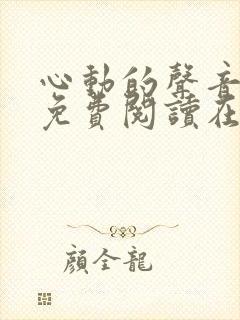 心動的聲音
免費閱讀在
顏全龍